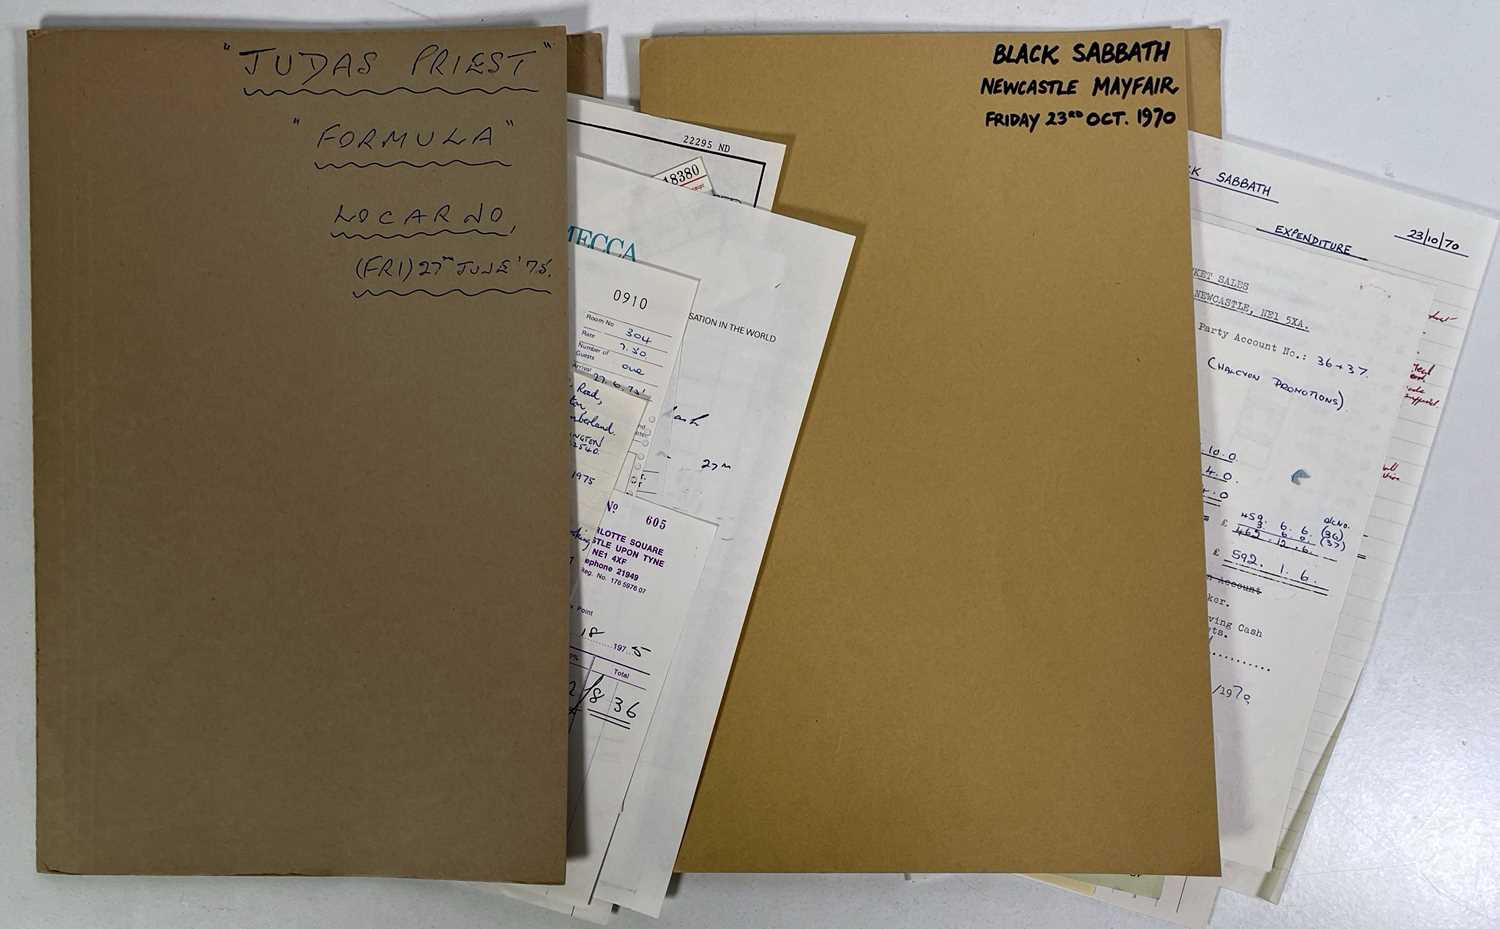 "JUDAS PRIEST"
"FORMULA"
LOCARNO,
(FRI) 27TH JUNE '75.
22295 ND
18380
MECCA
SATION IN THE WORLD
0910
Room No 304
Rate 7.50
Number of Guests one
Arrival 27.6.75
Road,
berland.
INGTON
1975
cash
27TH
No 605
LOTTE SQUARE
STLE UPON TYNE
NE1 4XF
ephone 21949
Reg. No. 176 5976 07
Point
18 1975
Total
2/8 36
BLACK SABBATH
NEWCASTLE MAYFAIR
FRIDAY 23RD OCT. 1970
CK SABBATH
EXPENDITURE
23/10/70
KET SALES
NEWCASTLE, NE1 5XA.
Party Account No.: 36+37.
(HALCYON PROMOTIONS)
10.0
4.0.
4.0
A/C NO.
= £ 459. 6. 6. (36)
3. 6. 0. (37)
462. 12. 6. =
£ 592. 1. 6.
n Account
ker.
ving Cash
ts.
/1970